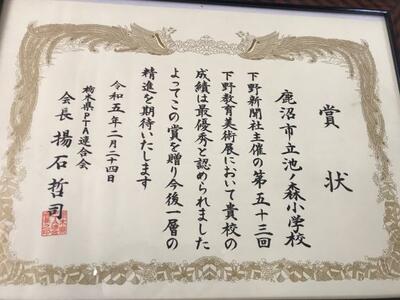 賞状
鹿沼市立池ノ森小学校
下野新聞社主催の第五十三回
下野教育美術展において貴校の
成績は最優秀と認められました
よってこの賞を贈り今後一層の
精進を期待いたします
令和五年二月二十四日
栃木県PTA連合会
会長 揚石哲司